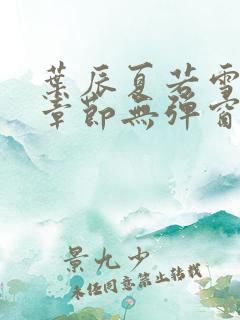 葉辰夏若雪
章節無彈窗
景九少
未经同意禁止转载